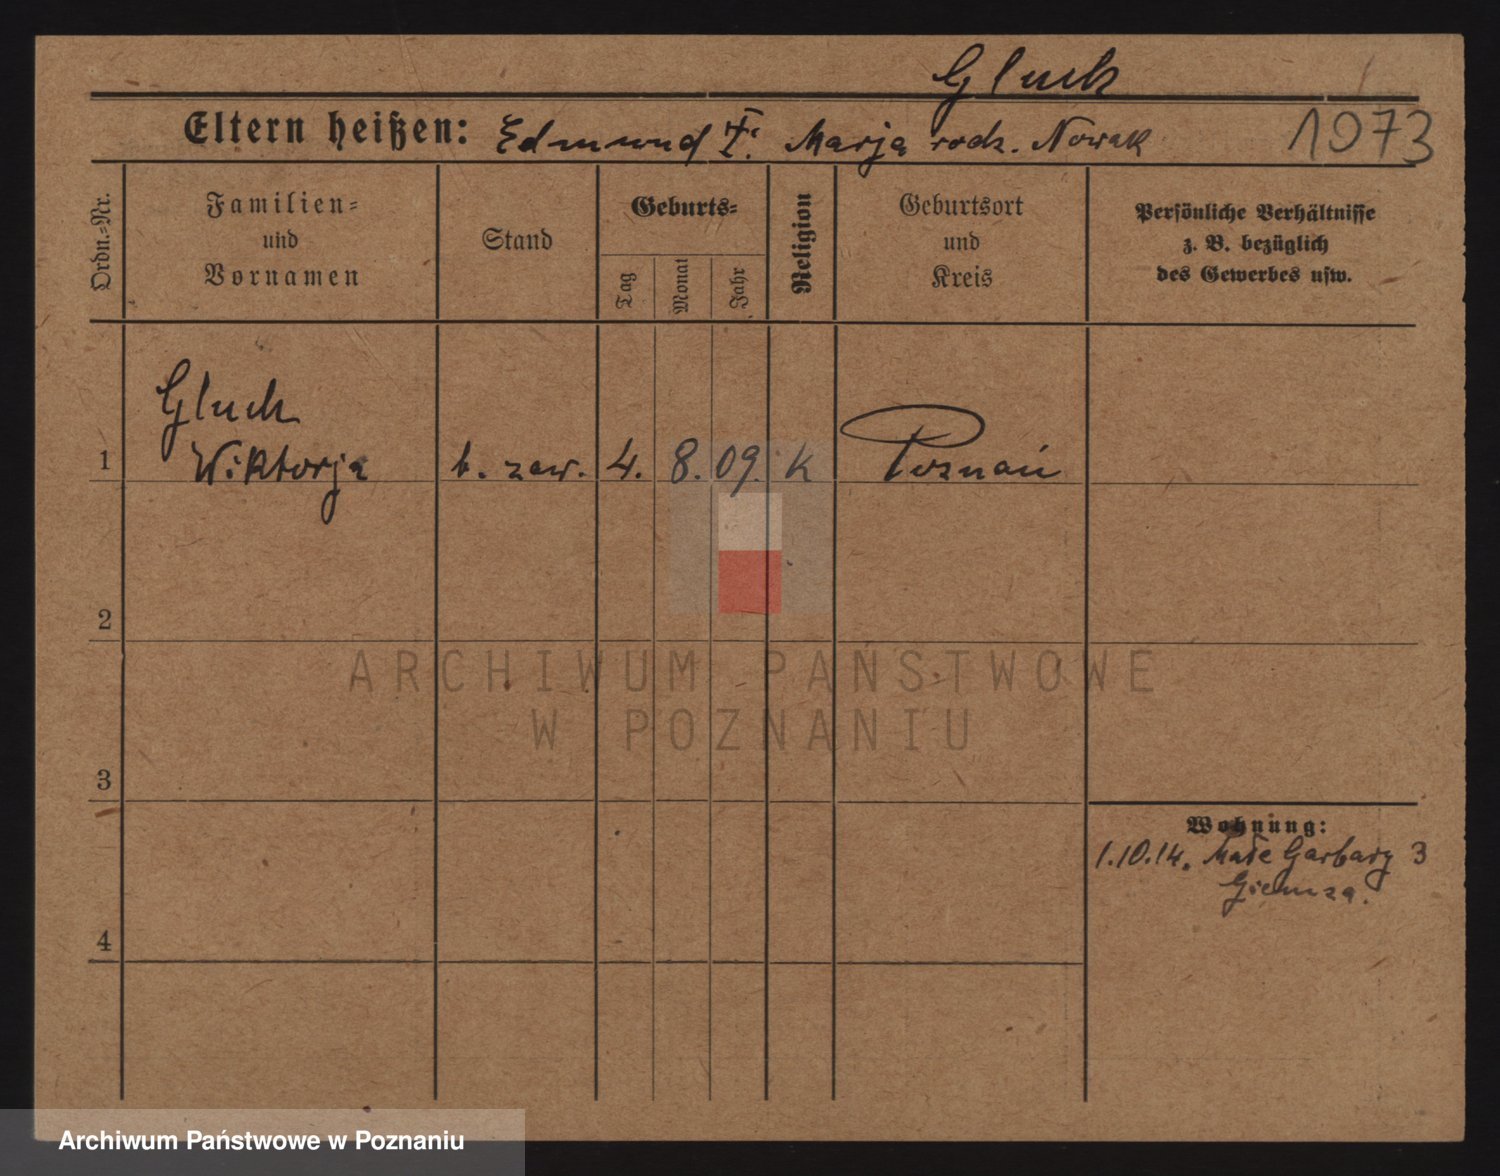 Gluck
Eltern heißen: Edmund I. Marja rodz. Nowak 1973
Ordn.-Nr.
Familien- und Vornamen
Stand
Geburts-
Tag
Monat
Jahr
Religion
Geburtsort und Kreis
Persönliche Verhältnisse
z. B. bezüglich
des Gewerbes usw.
Gluck
1 Wiktorja b. zaw. 4. 8. 09. K Poznań
2
ARCHIWUM PAŃSTWOWE
W POZNANIU
3
Wohnung:
1.10.14. Małe Garbary 3
4
Archiwum Państwowe w Poznaniu